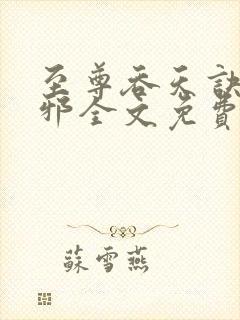 至尊吞天訣
邪全文免費
蘇雪燕